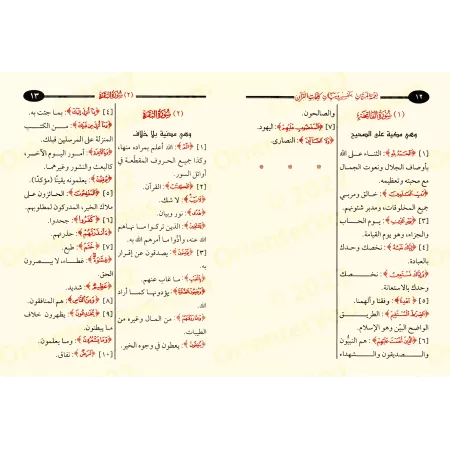 ١٢
(١) سُورَةُ الْفَاتِحَةِ
وهي مكية على الصحيح
[١] ﴿الْحَمْدُ لِلَّهِ﴾: الثناء على الله
بأوصاف الجلال ونعوت الجمال
مع محبته وتعظيمه.
﴿رَبِّ الْعَالَمِينَ﴾: خالق ومربي
جميع المخلوقات، ومدبر شئونهم.
[٣] ﴿يَوْمِ الدِّينِ﴾: يوم الحساب
والجزاء، وهو يوم القيامة.
[٤] ﴿إِيَّاكَ نَعْبُدُ﴾: نخصك وحدك
بالعبادة.
﴿وَإِيَّاكَ نَسْتَعِينُ﴾: نخصك
وحدك بالاستعانة.
[٥] ﴿اهْدِنَا﴾: وفقنا وألهمنا.
﴿الصِّرَاطَ الْمُسْتَقِيمَ﴾: الطريق
الواضح البيّن وهو الإسلام.
[٦] ﴿الَّذِينَ أَنْعَمْتَ عَلَيْهِمْ﴾: هم النبيُّون
والصديقون والشهداء
والصالحون.
[٧] ﴿الْمَغْضُوبِ عَلَيْهِمْ﴾: اليهود.
﴿وَلَا الضَّالِّينَ﴾: النصارى.
(٢) سُورَةُ الْبَقَرَةِ
١٣
(٢) سُورَةُ الْبَقَرَةِ
وهي مدنية بلا خلاف
[١] ﴿الم﴾: الله أعلم بمراده منها،
وكذا جميع الحروف المقطّعة في
أوائل السور.
[٢] ﴿الْكِتَابُ﴾: القرآن.
﴿لَا رَيْبَ﴾: لا شك.
﴿هُدًى﴾: نور وبيان.
﴿لِّلْمُتَّقِينَ﴾: الذين تركوا ما نهاهم
الله عنه، وأدَّوا ما أمرهم الله به.
[٣] ﴿يُؤْمِنُونَ﴾: يصدقون عن إقرار
به.
﴿بِالْغَيْبِ﴾: ما غاب عنهم.
﴿وَيُقِيمُونَ الصَّلَاةَ﴾: يؤدونها كما أراد
الله.
﴿وَمِمَّا رَزَقْنَاهُمْ﴾: من المال وغيره من
الطيبات.
﴿يُنفِقُونَ﴾: يعطون في وجوه الخير.
[٤] ﴿بِمَا أُنزِلَ إِلَيْكَ﴾: بما جئت به.
﴿وَمَا أُنزِلَ مِن قَبْلِكَ﴾: من الكتب
المنزلة على المرسلين قبلك.
﴿وَبِالْآخِرَةِ﴾: أمور اليوم الآخر،
كالبعث والنشور وغيرهما.
﴿يُوقِنُونَ﴾: يعلمونه يقينًا (مؤكدًا).
[٥] ﴿الْمُفْلِحُونَ﴾: الحائزون على
ملاك الخير، المدركون لمطلوبهم.
[٦] ﴿كَفَرُوا﴾: جحدوا.
﴿أَأَنذَرْتَهُمْ﴾: حذرتهم.
[٧] ﴿خَتَمَ﴾: طبع.
﴿غِشَاوَةٌ﴾: غطاء، لا يبصرون
الحق.
﴿عَظِيمٌ﴾: شديد.
[٨] ﴿وَمِنَ النَّاسِ﴾: هم المنافقون.
[٩] ﴿يُخَادِعُونَ﴾: يظهرون خلاف
ما يبطنون.
﴿وَمَا يَشْعُرُونَ﴾: وما يعلمون.
[١٠] ﴿مَّرَضٌ﴾: نفاق.